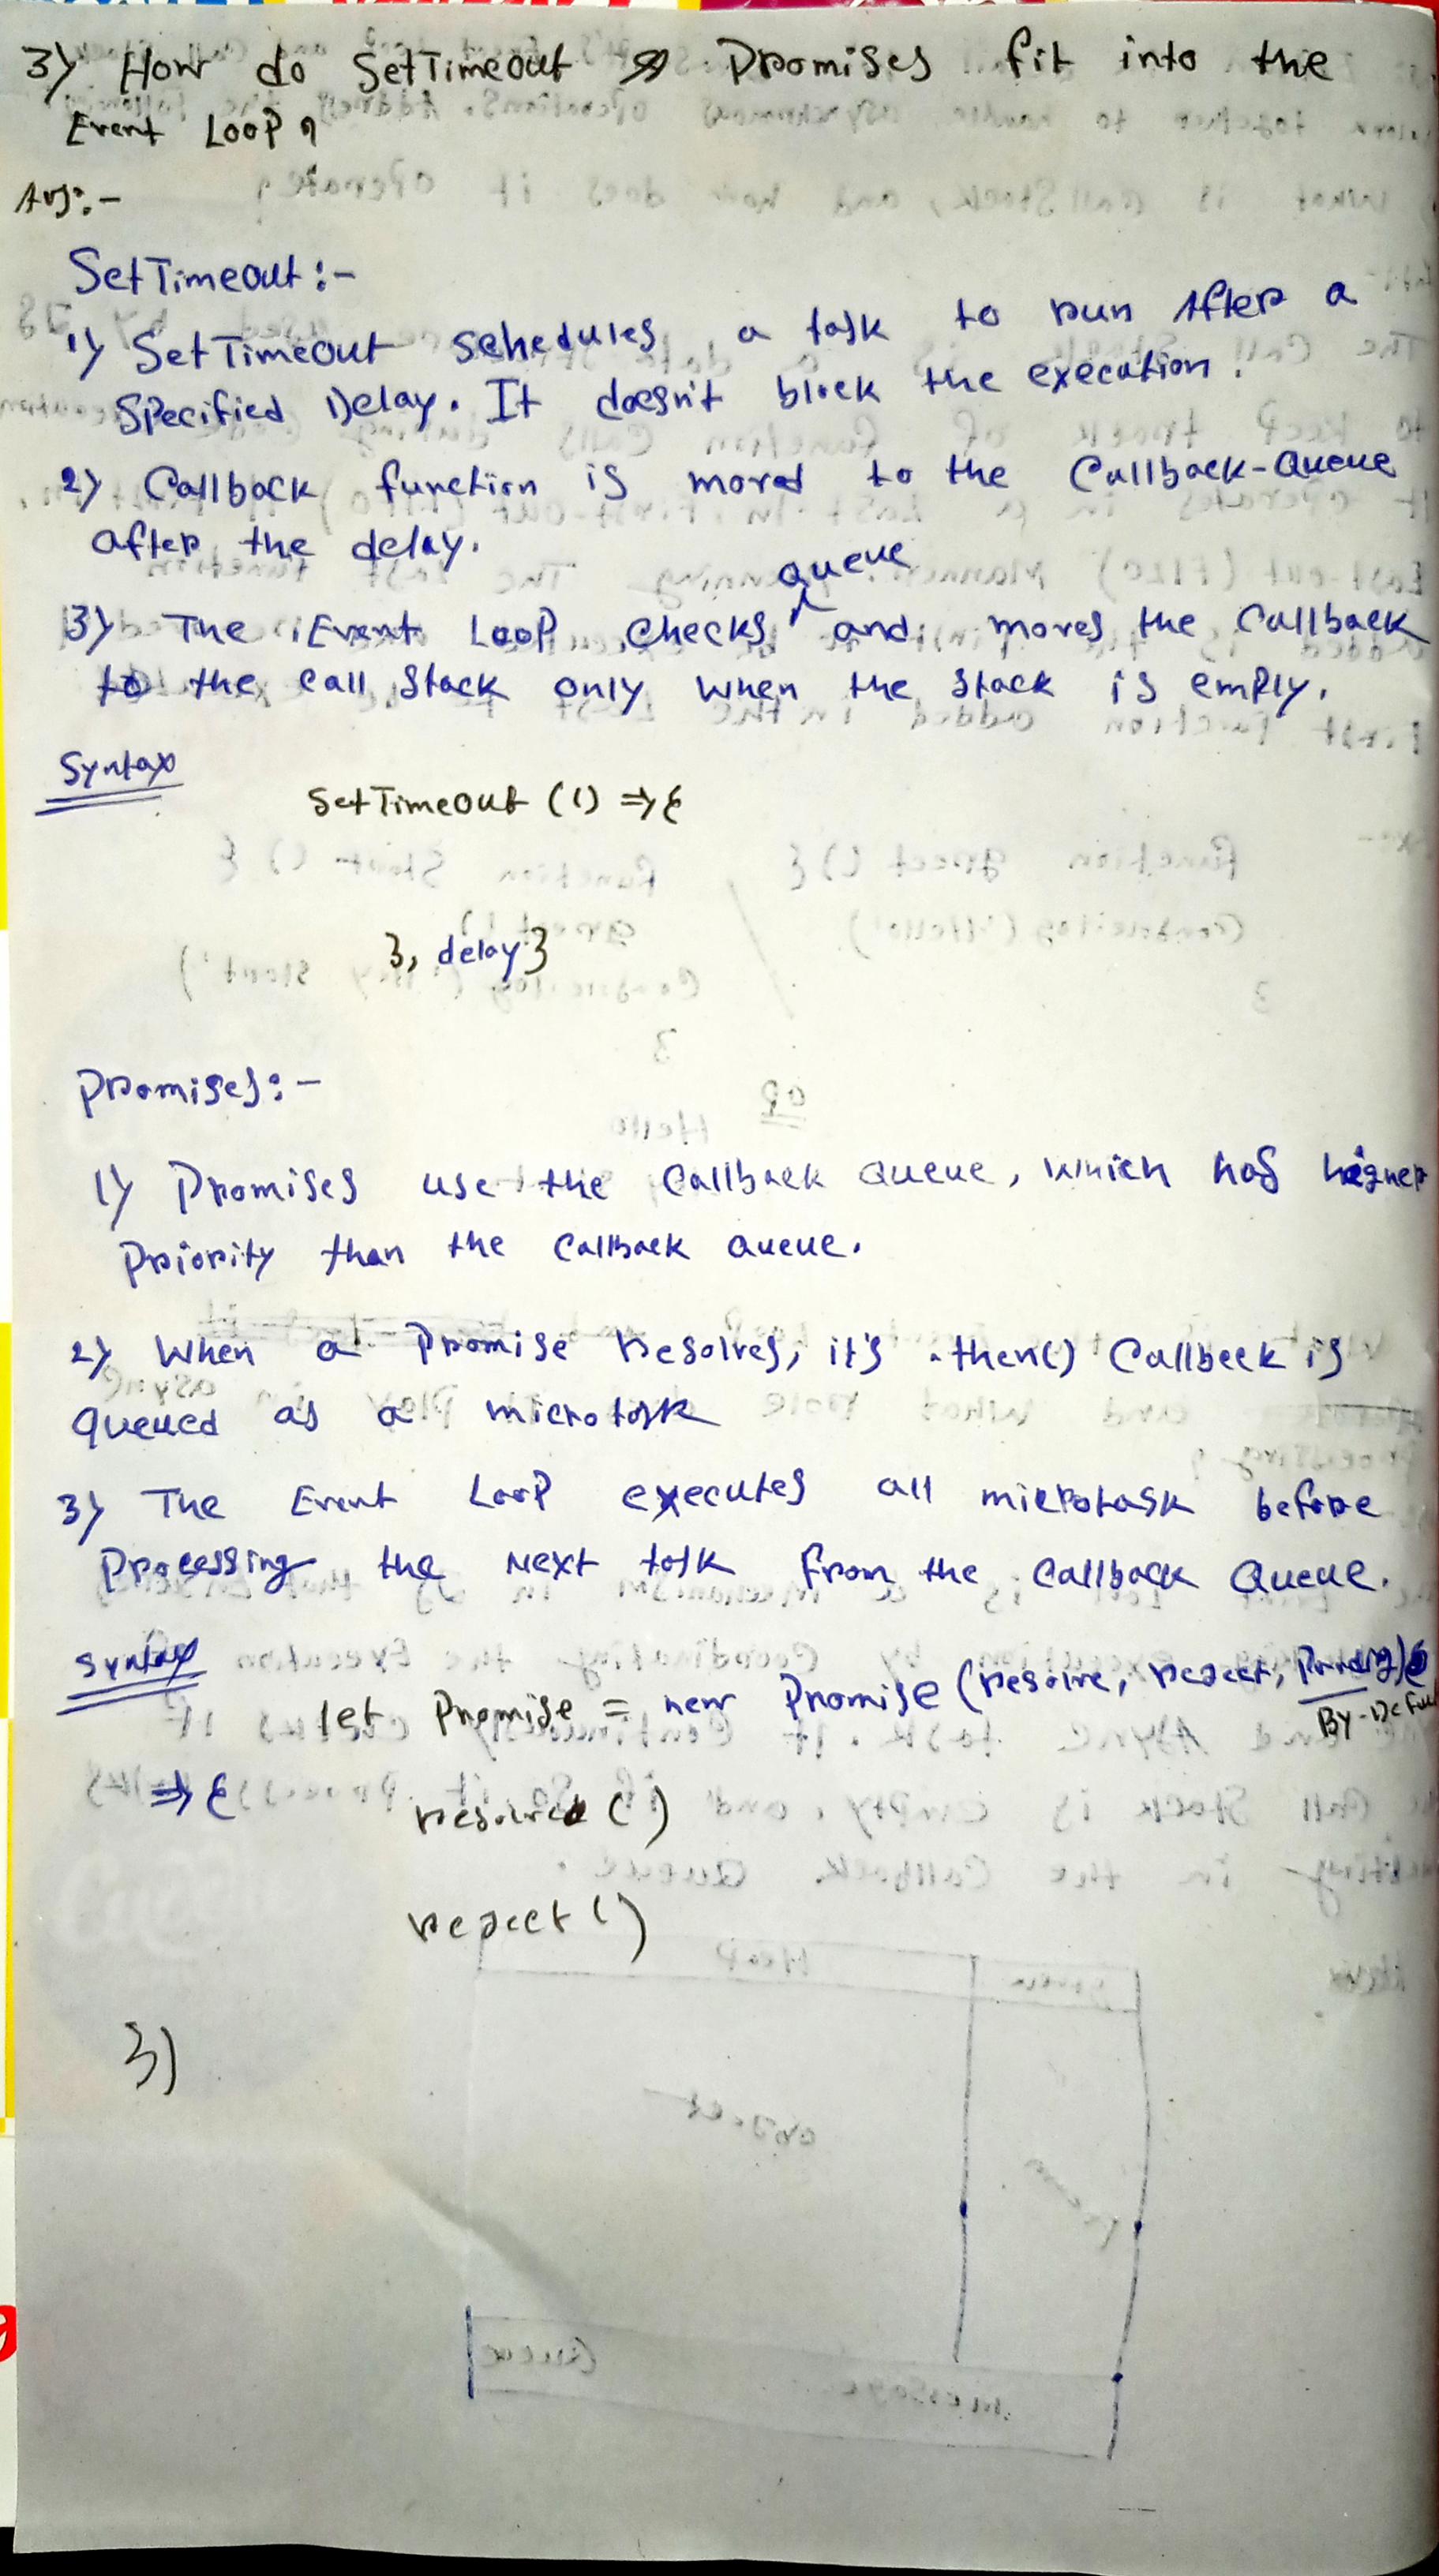 3) How do SetTimeout & Promises fit into the
Event Loop ?
Ans:-
SetTimeout:-
1) SetTimeout schedules a task to run After a
Specified Delay. It doesn't block the execution.
2) Callback function is moved to the Callback-Queue
after the delay.
queue
3) The Event Loop checks and moves the Callback
to the call stack only when the stack is empty.
Syntax
SetTimeout (() => {
}, delay}
Promises:-
1) Promises use the Callback Queue, which has higher
Priority than the Callback Queue.
2) When a Promise Resolves, it's .then() Callback is
Queued as a microtask
3) The Event Loop executes all microtask before
Processing the Next task from the Callback Queue.
Syntax
let Promise = new Promise (resolve, reject, Pending) {
By-Default
=> {
resolved ()
reject ()
3)